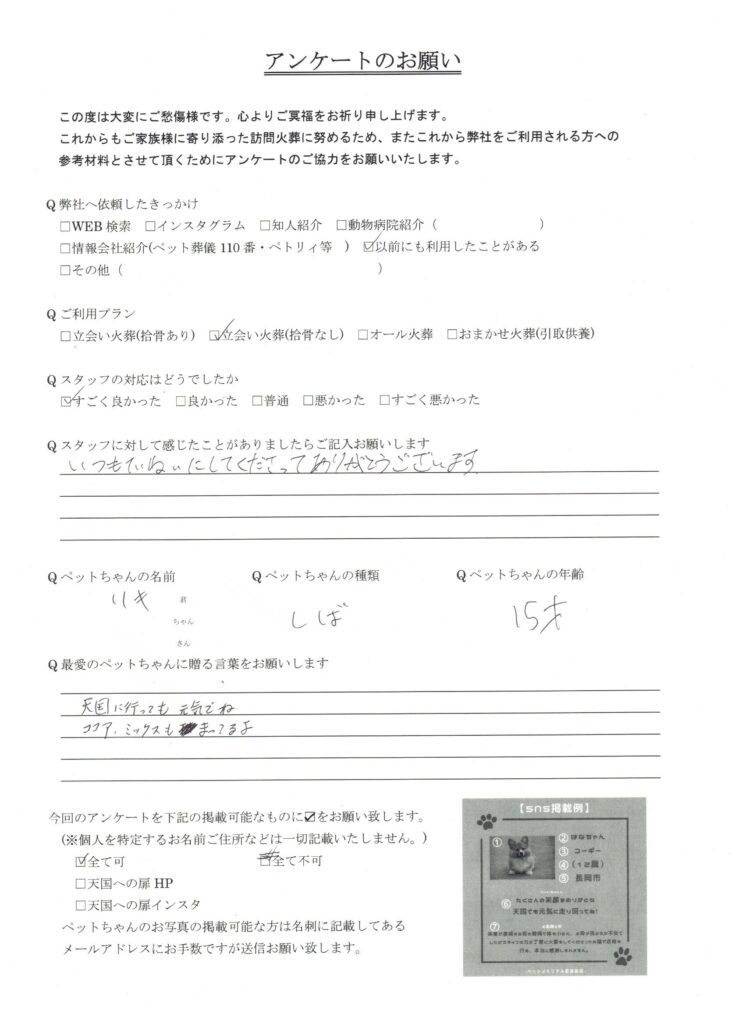 アンケートのお願い
この度は大変にご愁傷様です。心よりご冥福をお祈り申し上げます。
これからもご家族様に寄り添った訪問火葬に努めるため、またこれから弊社をご利用される方への
参考材料とさせて頂くためにアンケートのご協力をお願いいたします。
Q 弊社へ依頼したきっかけ
□WEB 検索 □インスタグラム □知人紹介 □動物病院紹介（ ）
□情報会社紹介(ペット葬儀 110 番・ペトリィ等 ) ☑以前にも利用したことがある
□その他（ ）
Q ご利用プラン
□立会い火葬(拾骨あり) ☑立会い火葬(拾骨なし) □オール火葬 □おまかせ火葬(引取供養)
Q スタッフの対応はどうでしたか
☑すごく良かった □良かった □普通 □悪かった □すごく悪かった
Q スタッフに対して感じたことがありましたらご記入お願いします
いつもていねいにしてくださってありがとうございます
Q ペットちゃんの名前 Q ペットちゃんの種類 Q ペットちゃんの年齢
リキ 君 しば 15才
ちゃん
さん
Q 最愛のペットちゃんに贈る言葉をお願いします
天国に行っても 元気でね
ココア．ミックスも まってるよ
今回のアンケートを下記の掲載可能なものに☑をお願い致します。
(※個人を特定するお名前ご住所などは一切記載いたしません。)
☑全て可 □全て不可
□天国への扉 HP
□天国への扉インスタ
ペットちゃんのお写真の掲載可能な方は名刺に記載してある
メールアドレスにお手数ですが送信お願い致します。
【sns掲載例】
① ② はなちゃん
③ コーギー
④ (12歳)
⑤ 長岡市
⑥ たくさんの笑顔をありがとね
天国でも元気に走り回ってね!
⑦